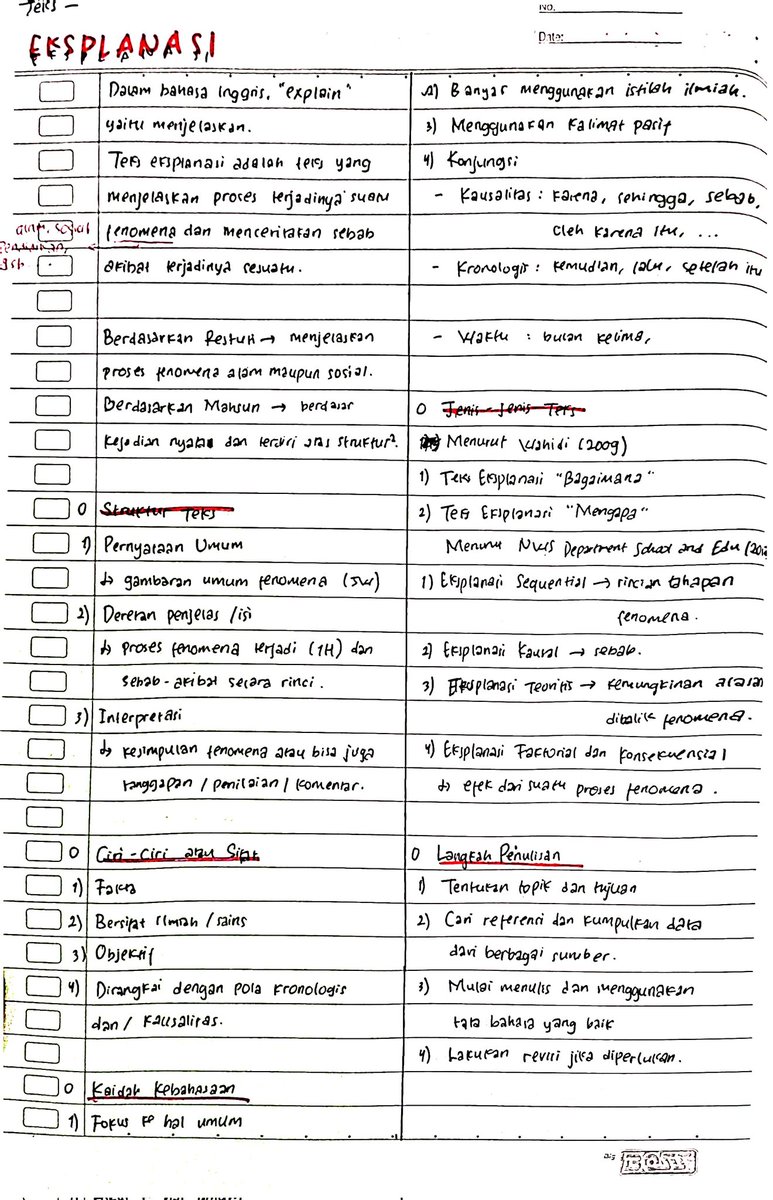 Teks -
EKSPLANASI
No.
Date:
Dalam bahasa Inggris, "explain"
yaitu menjelaskan.
Teks eksplanasi adalah teks yang
menjelaskan proses terjadinya suatu
fenomena dan menceritakan sebab
alam, sosial
akibat terjadinya sesuatu.
Berdasarkan Restuti → menjelaskan
proses fenomena alam maupun sosial.
Berdasarkan Mahsun → berdasar
kejadian nyata dan terdiri atas struktur².
O Struktur Teks
1) Pernyataan Umum
↳ gambaran umum fenomena (5W)
2) Deretan penjelas / isi
↳ proses fenomena terjadi (1H) dan
sebab-akibat secara rinci.
3) Interpretasi
↳ kesimpulan fenomena atau bisa juga
tanggapan / penilaian / komentar.
O Ciri-Ciri atau Sifat
1) Fakta
2) Bersifat Ilmiah / sains
3) Objektif
4) Dirangkai dengan pola kronologis
dan / kausalitas.
O Kaidah Kebahasaan
1) Fokus ke hal umum
2) Banyak menggunakan istilah ilmiah.
3) Menggunakan kalimat pasif
4) Konjungsi
- Kausalitas : karena, sehingga, sebab,
oleh karena itu, ...
- Kronologis : kemudian, lalu, setelah itu
- Waktu : bulan kelima,
O Jenis-Jenis Teks
Menurut Wahidi (2009)
1) Teks Eksplanasi "Bagaimana"
2) Teks Eksplanasi "Mengapa"
Menurut Department School and Edu
1) Eksplanasi Sequential → rincian tahapan
fenomena.
2) Eksplanasi Kausal → sebab.
3) Eksplanasi Teoritis → kemungkinan alasan
dibalik fenomena.
4) Eksplanasi Faktorial dan Konsekuensial
↳ efek dari suatu proses fenomena.
O Langkah Penulisan
1) Tentukan topik dan tujuan
2) Cari referensi dan kumpulkan data
dari berbagai sumber.
3) Mulai menulis dan menggunakan
tata bahasa yang baik
4) Lakukan revisi jika diperlukan.
BOSS